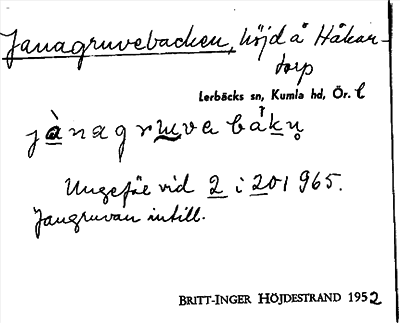 Janagruvebacken, höjd å Håkan-
torp
Lerbäcks sn, Kumla hd, Ör. l
jànagruvebákn̥
Ungefär vid 2 i 201 965.
Jangruvan intill.
BRITT-INGER HÖJDESTRAND 1952